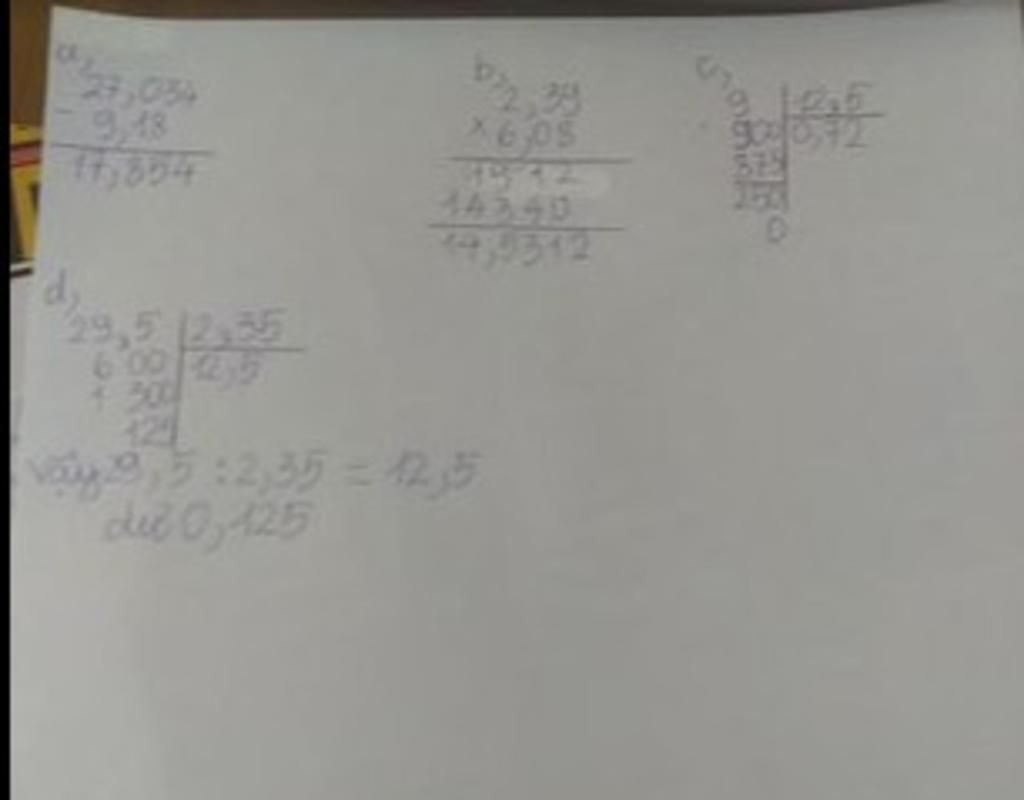 a,
27,034
- 9,18
17,854
b,
2,39
× 6,08
1912
14340
14,5312
c,
9 12,5
900 0,72
375
250
0
d,
29,5 2,35
6 00 12,5
1 300
125
vậy 29,5 : 2,35 = 12,5
dư 0,125